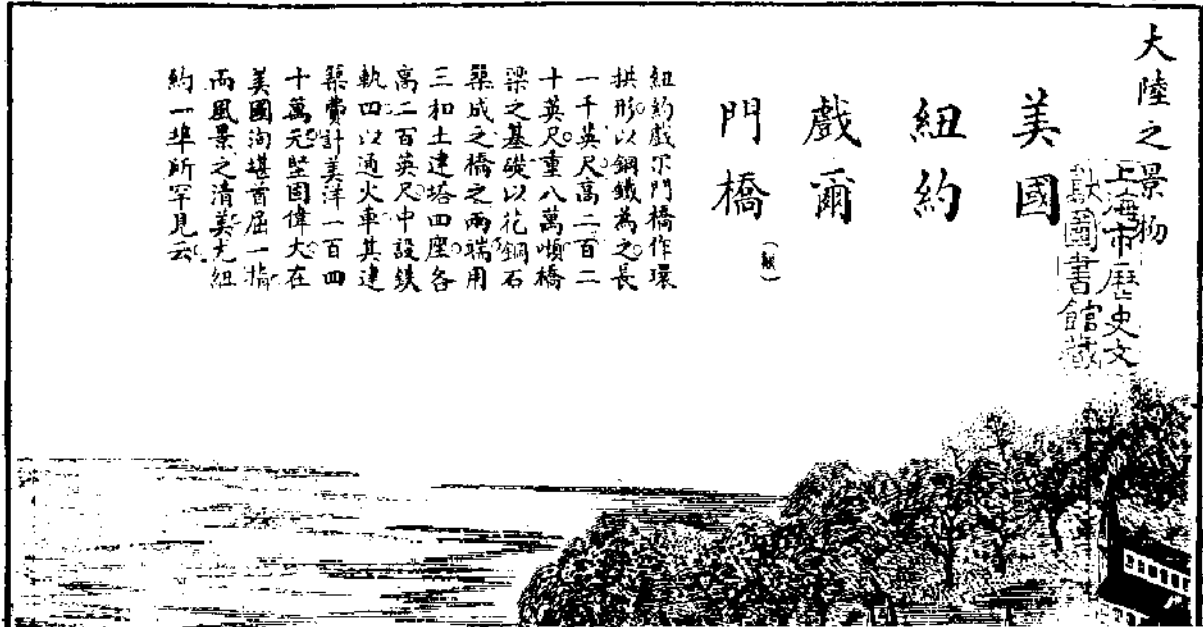 大陸之景物
上海市歷史文
獻圖書館藏
美國
紐約
戲爾
門橋
紐約戲尔門橋作環
拱形以鋼鐵為之長
一千英尺高二百二
十英尺重八萬噸橋
梁之基礎以花鋼石
築成之橋之兩端用
三和土建塔四座各
高二百英尺中設鉄
軌四以通火車其建
築費計美洋一百四
十萬元堅固偉大在
美國洵堪首屈一指
而風景之清美尤紐
約一埠所罕見云